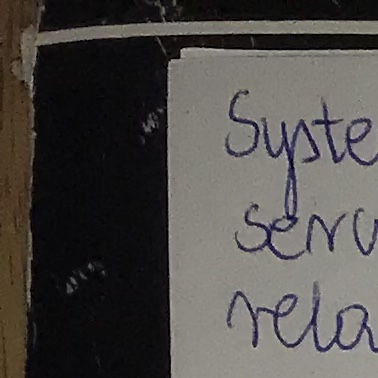 Syste
serv
rela